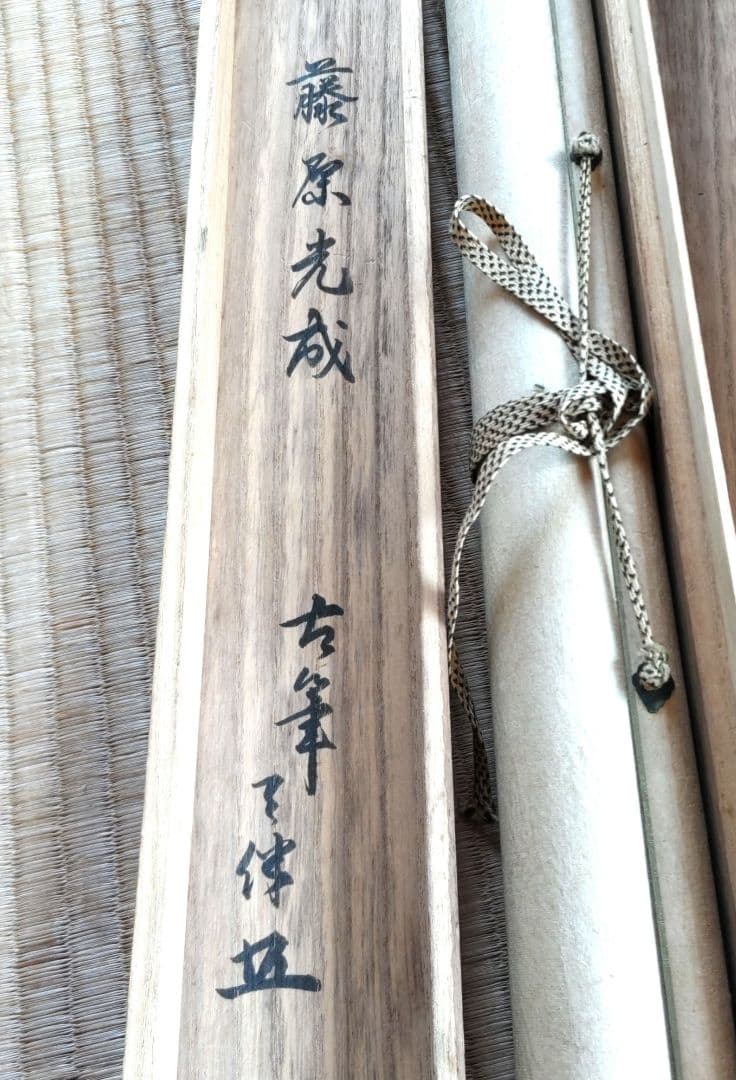 藤原光成 古筆了伴